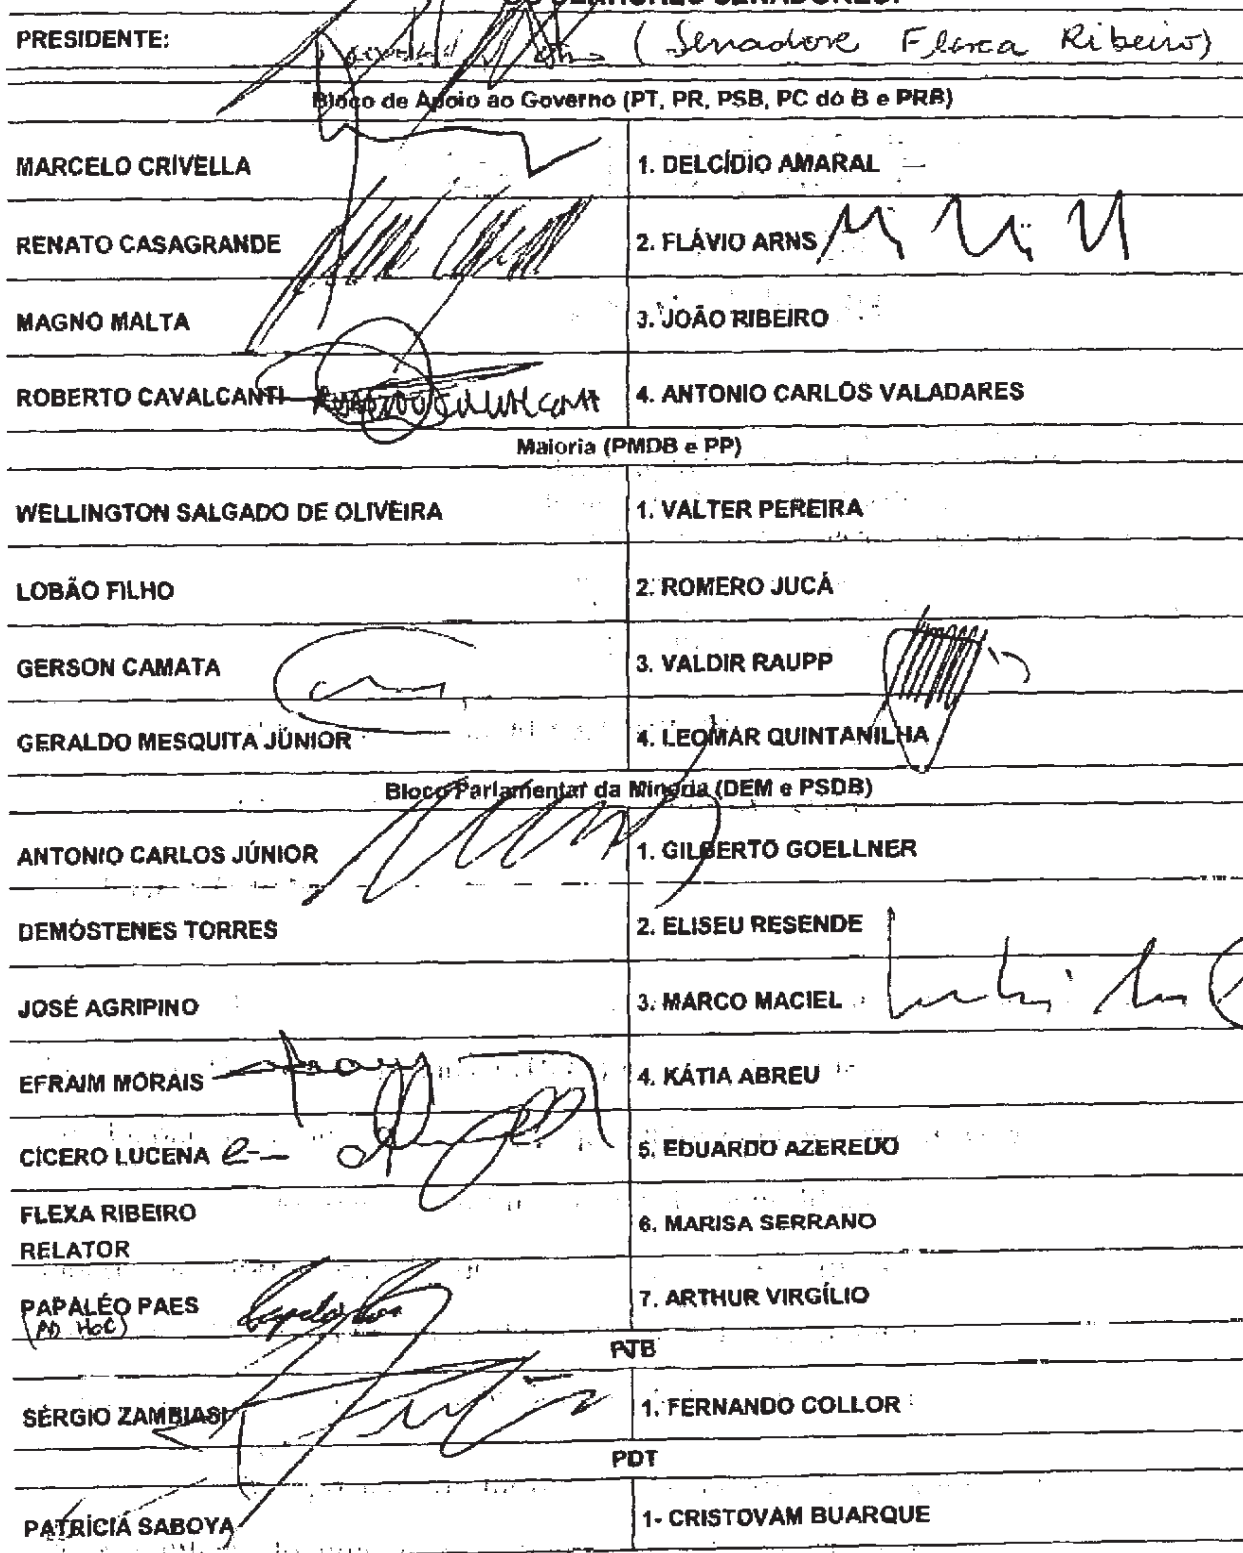 SENHORES SENADORES:
PRESIDENTE: (Senadore Flexa Ribeiro)
Bloco de Apoio ao Governo (PT, PR, PSB, PC do B e PRB)
MARCELO CRIVELLA 1. DELCÍDIO AMARAL
RENATO CASAGRANDE 2. FLÁVIO ARNS
MAGNO MALTA 3. JOÃO RIBEIRO
ROBERTO CAVALCANTI 4. ANTONIO CARLOS VALADARES
Maioria (PMDB e PP)
WELLINGTON SALGADO DE OLIVEIRA 1. VALTER PEREIRA
LOBÃO FILHO 2. ROMERO JUCÁ
GERSON CAMATA 3. VALDIR RAUPP
GERALDO MESQUITA JÚNIOR 4. LEOMAR QUINTANILHA
Bloco Parlamentar da Minoria (DEM e PSDB)
ANTONIO CARLOS JÚNIOR 1. GILBERTO GOELLNER
DEMÓSTENES TORRES 2. ELISEU RESENDE
JOSÉ AGRIPINO 3. MARCO MACIEL
EFRAIM MORAIS 4. KÁTIA ABREU
CÍCERO LUCENA 5. EDUARDO AZEREDO
FLEXA RIBEIRO 6. MARISA SERRANO
RELATOR
PAPALÉO PAES 7. ARTHUR VIRGÍLIO
(AD HOC)
PTB
SÉRGIO ZAMBIASI 1. FERNANDO COLLOR
PDT
PATRÍCIA SABOYA 1- CRISTOVAM BUARQUE